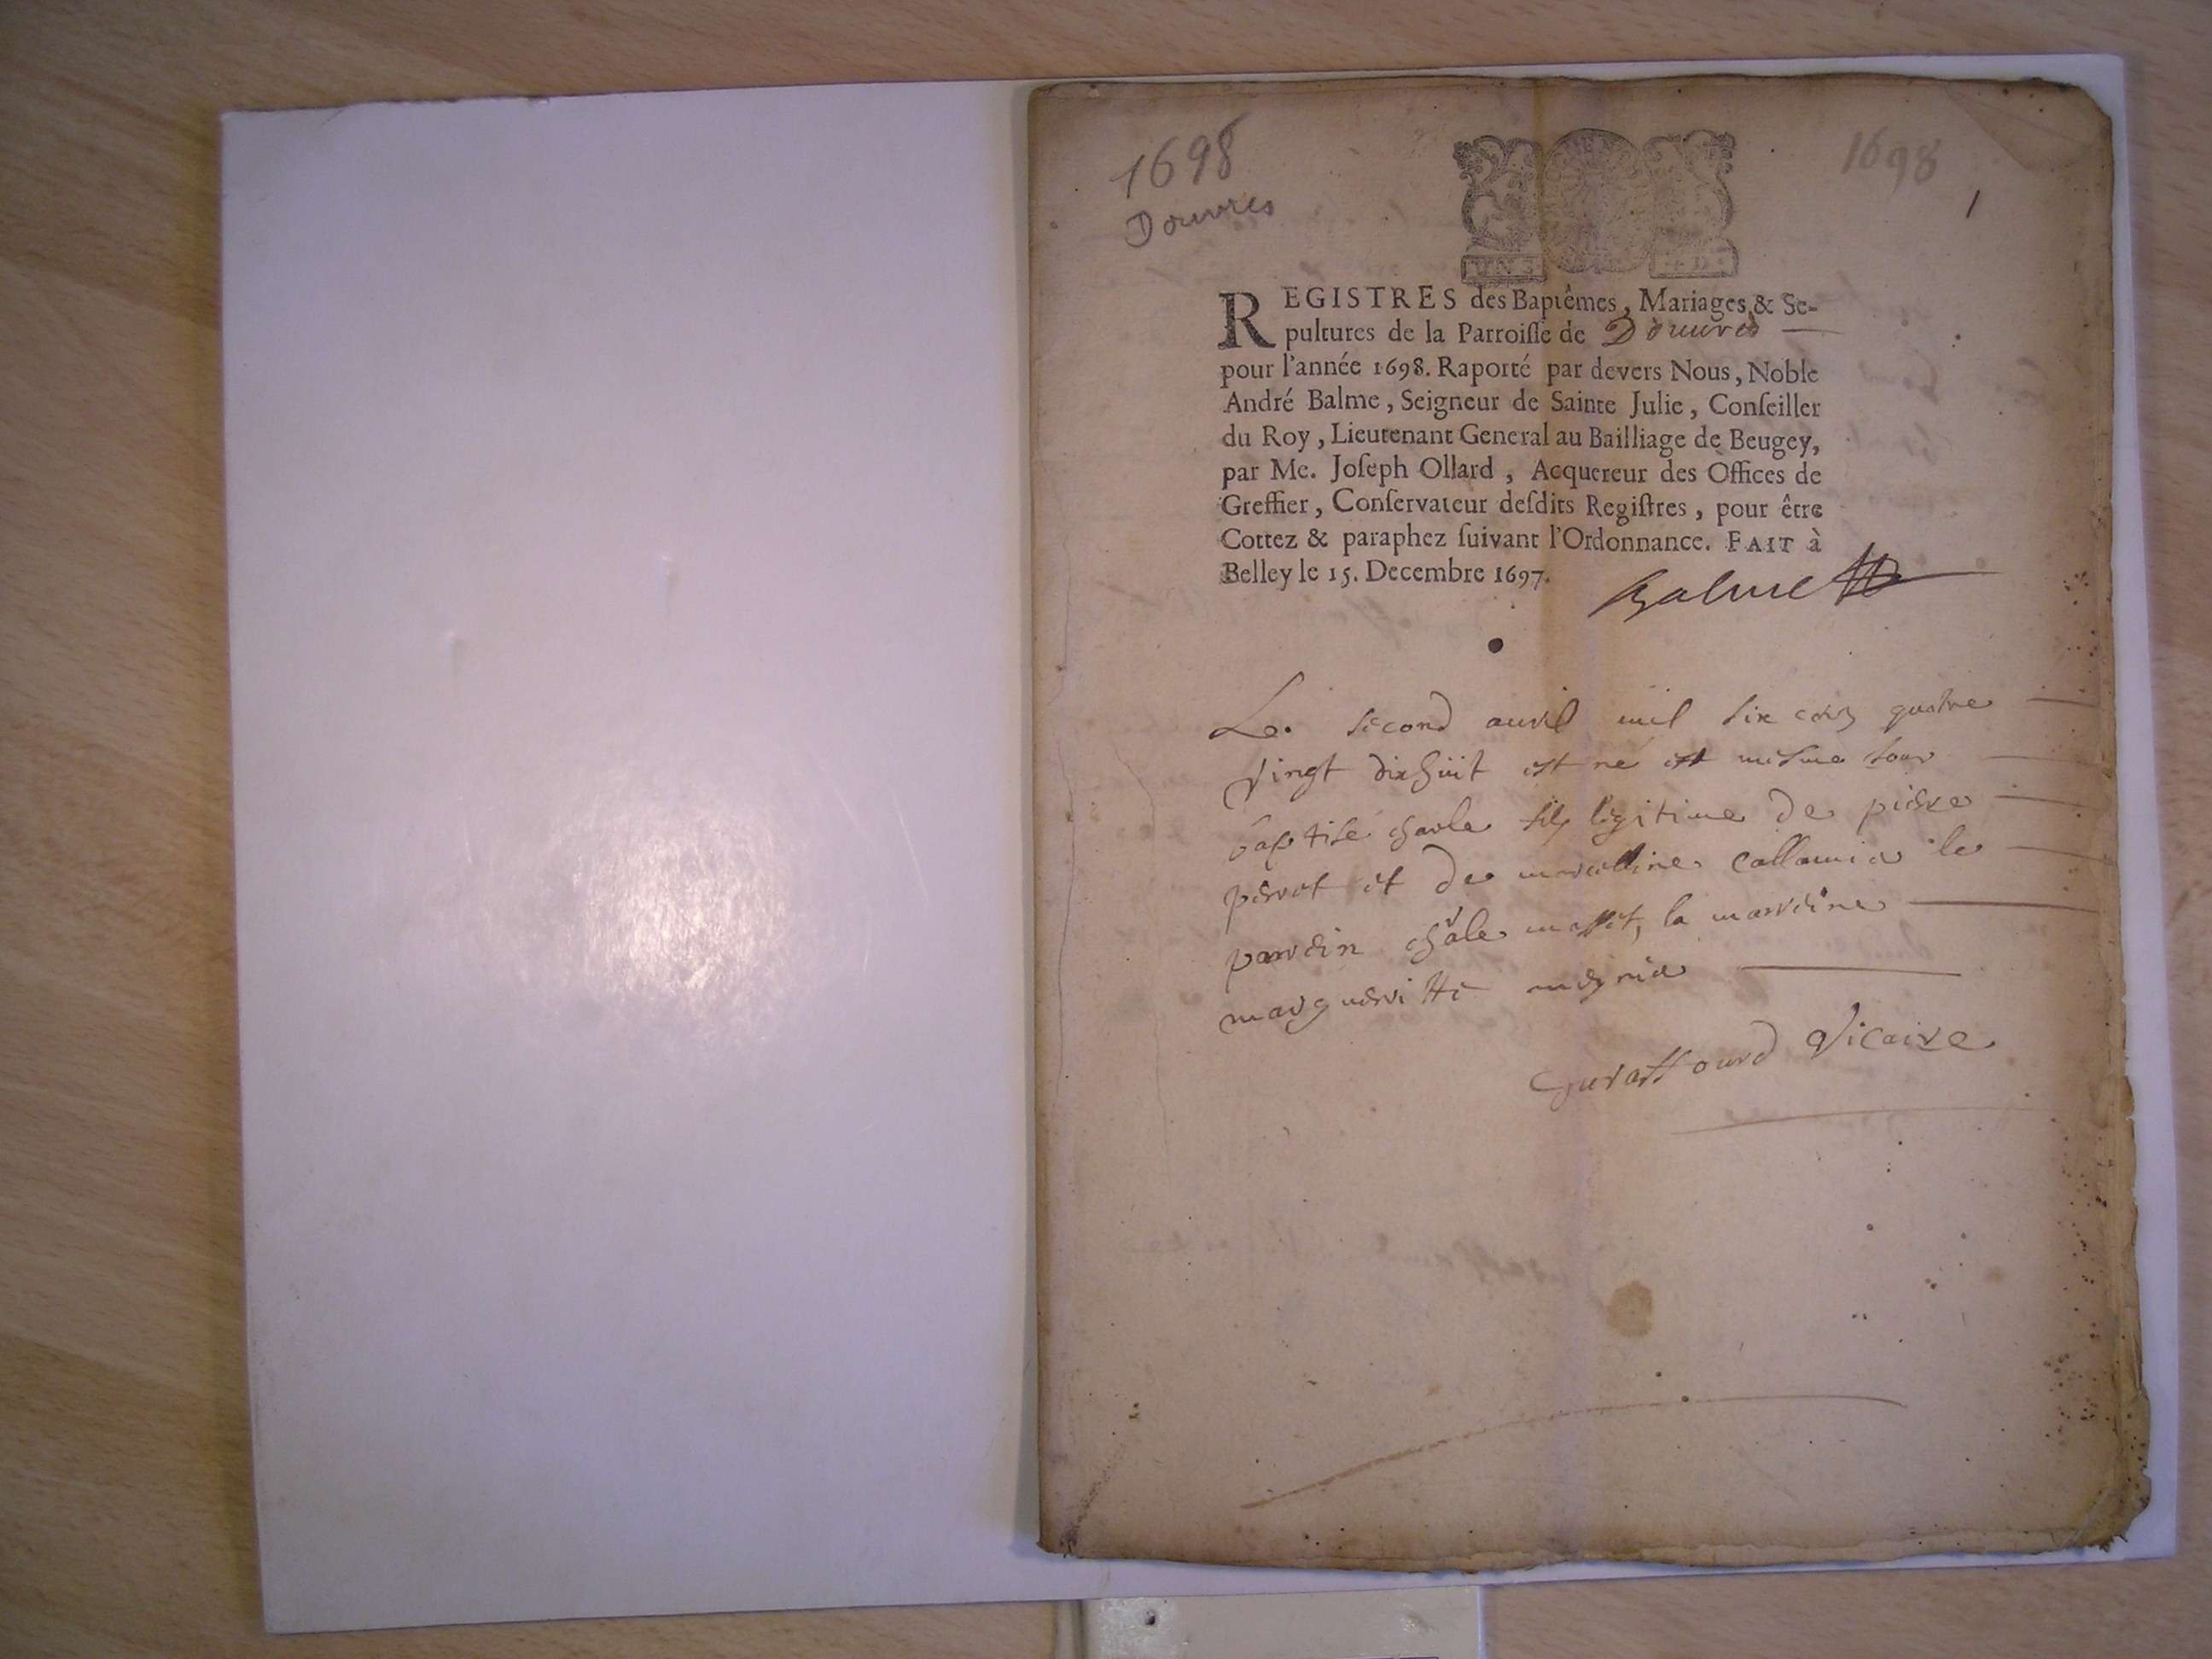 1698
Douvres
1698
1
REGISTRES des Baptêmes, Mariages, & Se-
pultures de la Parroisse de Douvres
pour l'année 1698. Raporté par devers Nous, Noble
André Balme, Seigneur de Sainte Julie, Conseiller
du Roy, Lieutenant General au Bailliage de Beugey,
par Me. Joseph Ollard, Acquereur des Offices de
Greffier, Conservateur desdits Registres, pour être
Cottez & paraphez suivant l'Ordonnance. FAIT à
Belley le 15. Decembre 1697.
Balme
Le second avril mil six cens quatre
vingt dixhuit est né et mesme jour
baptisé charle fils legitime de pierre
perrot et de marcelline callamia le
parrin charle la marrine
margueritte
vicaire